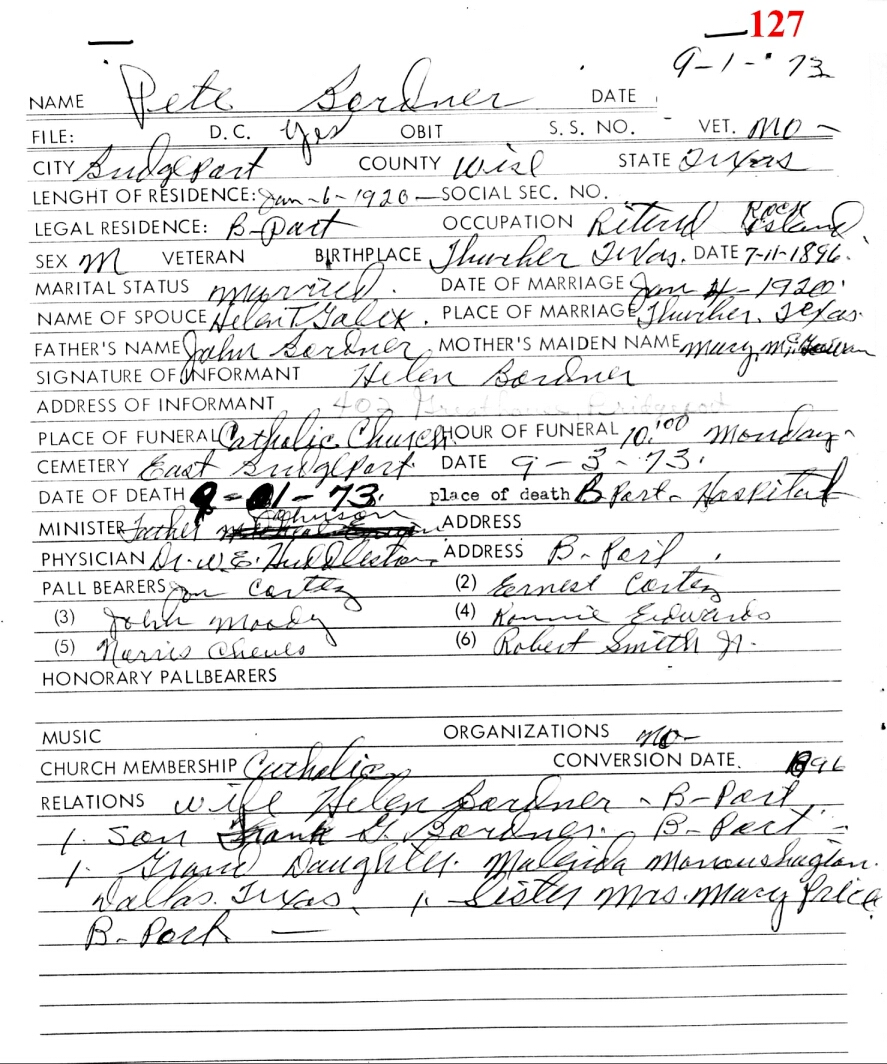 127
9-1-'73
NAME Pete Bordner DATE
FILE: D.C. Yes OBIT S.S. NO. - VET. No -
CITY Bridgeport COUNTY Wise STATE Texas
LENGHT OF RESIDENCE: Jan-6-1920 - SOCIAL SEC. NO.
LEGAL RESIDENCE: B-Port OCCUPATION Retired Rock Island
SEX M VETERAN BIRTHPLACE Thurber Texas. DATE 7-11-1896.
MARITAL STATUS married. DATE OF MARRIAGE Jan 4-1920
NAME OF SPOUCE Helen T Galix. PLACE OF MARRIAGE Thurber, Texas.
FATHER'S NAME John Bordner MOTHER'S MAIDEN NAME Mary
SIGNATURE OF INFORMANT Helen Bordner
ADDRESS OF INFORMANT 402 Greathouse, Bridgeport
PLACE OF FUNERAL Catholic Church. HOUR OF FUNERAL 10:00 Monday-
CEMETERY East Bridgeport. DATE 9-3-73.
DATE OF DEATH 9-01-73. place of death B Port- Hospital
MINISTER Father Johnson ADDRESS
PHYSICIAN Dr. W.E. Huddleston ADDRESS B-Port.
PALL BEARERS Joe Cortez (2) Ernest Cortez
(3) John Moody (4) Ronnie Edwards
(5) Norris Cheves (6) Robert Smith Jr.
HONORARY PALLBEARERS
MUSIC ORGANIZATIONS No-
CHURCH MEMBERSHIP Catholic CONVERSION DATE. 1896
RELATIONS Wife Helen Bordner - B-Port
1. Son Frank G. Bordner. B-Port -
1. Grand Daughter. Malinda
Dallas. Texas. 1. Sister Mrs. Mary Price
B-Port —